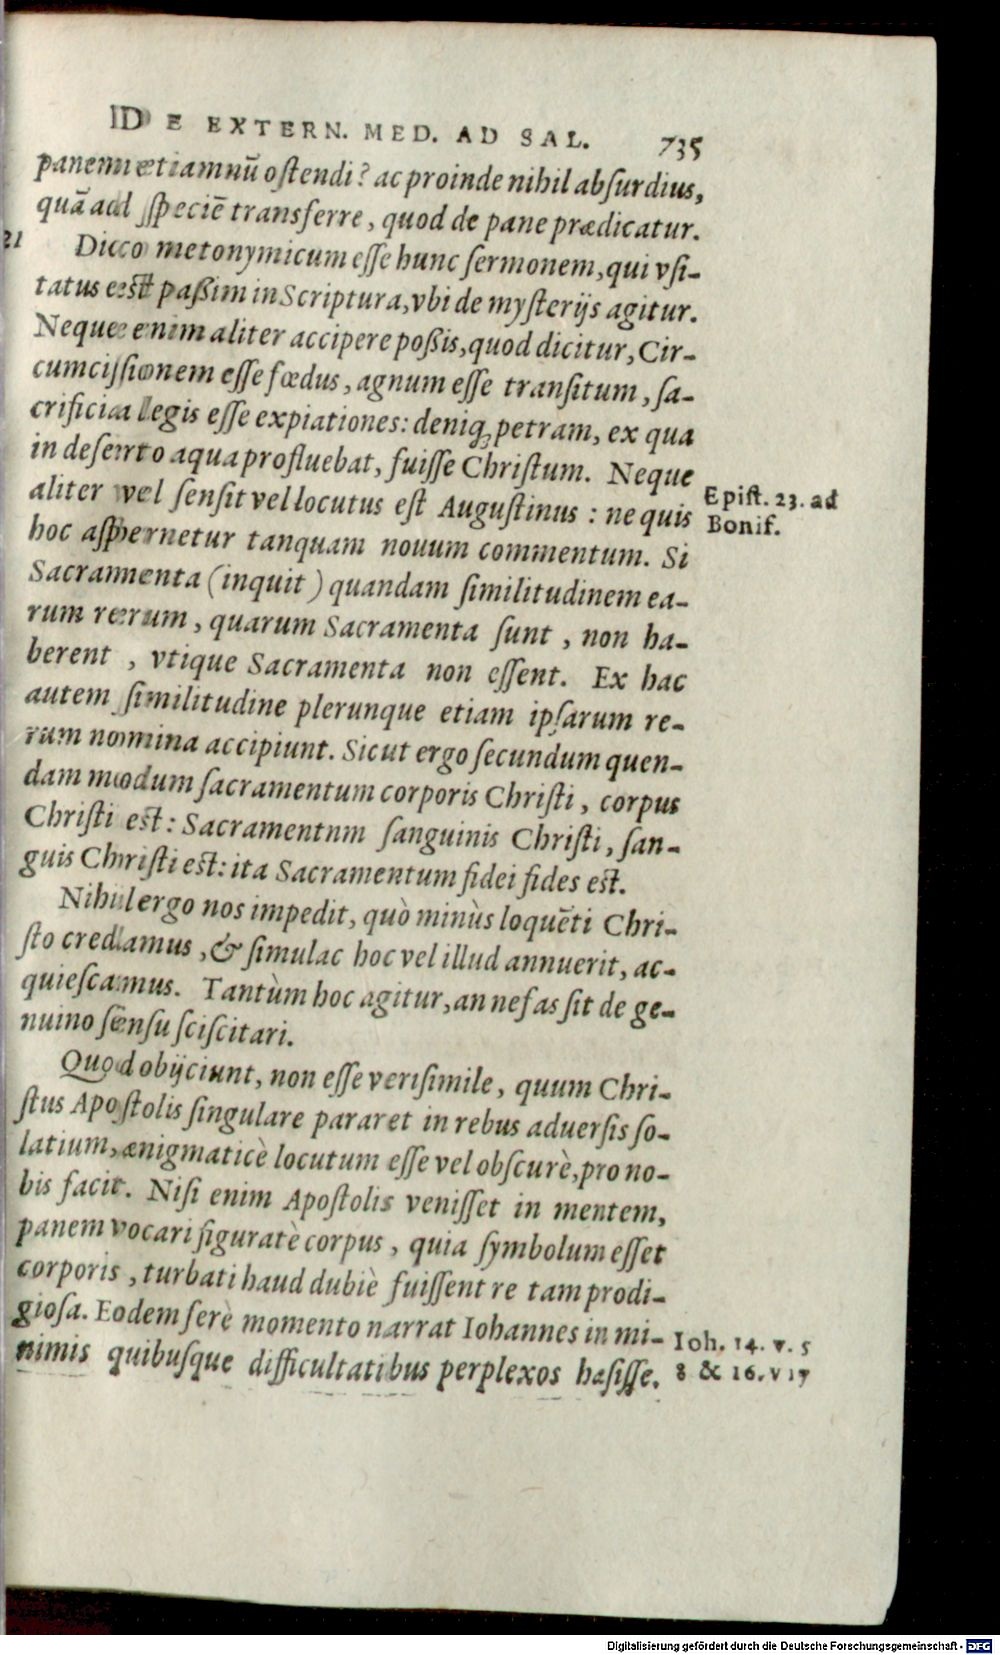 DE EXTERN. MED. AD SAL. 735
panem etiamnū ostendi? ac proinde nihil absurdius,
quā ad speciē transferre, quod de pane prædicatur.
21 Dico metonymicum esse hunc sermonem, qui vsi-
tatus est paßim in Scriptura, vbi de mysterijs agitur.
Neque enim aliter accipere poßis, quod dicitur, Cir-
cumcisionem esse fœdus, agnum esse transitum, sa-
crificia legis esse expiationes: deniq; petram, ex qua
in deserto aqua profluebat, fuisse Christum. Neque
aliter vel sensit vel locutus est Augustinus : ne quis
Epist. 23. ad
Bonif.
hoc aspernetur tanquam nouum commentum. Si
Sacramenta (inquit) quandam similitudinem ea-
rum rerum, quarum Sacramenta sunt, non ha-
berent, vtique Sacramenta non essent. Ex hac
autem similitudine plerunque etiam ipsarum re-
rum nomina accipiunt. Sicut ergo secundum quen-
dam modum sacramentum corporis Christi, corpus
Christi est: Sacramentnm sanguinis Christi, san-
guis Christi est: ita Sacramentum fidei fides est.
Nihil ergo nos impedit, quò minùs loquēti Chri-
sto credamus, & simulac hoc vel illud annuerit, ac-
quiescamus. Tantùm hoc agitur, an nefas sit de ge-
nuino sensu sciscitari.
Quod obijciunt, non esse verisimile, quum Chri-
stus Apostolis singulare pararet in rebus aduersis so-
latium, ænigmaticè locutum esse vel obscurè, pro no-
bis facit. Nisi enim Apostolis venisset in mentem,
panem vocari figuratè corpus, quia symbolum esset
corporis, turbati haud dubiè fuissent re tam prodi-
giosa. Eodem ferè momento narrat Iohannes in mi-
nimis quibusque difficultatibus perplexos hæsisse.
Ioh. 14. v. 5
8 & 16. v 17
Digitalisierung gefördert durch die Deutsche Forschungsgemeinschaft - DFG